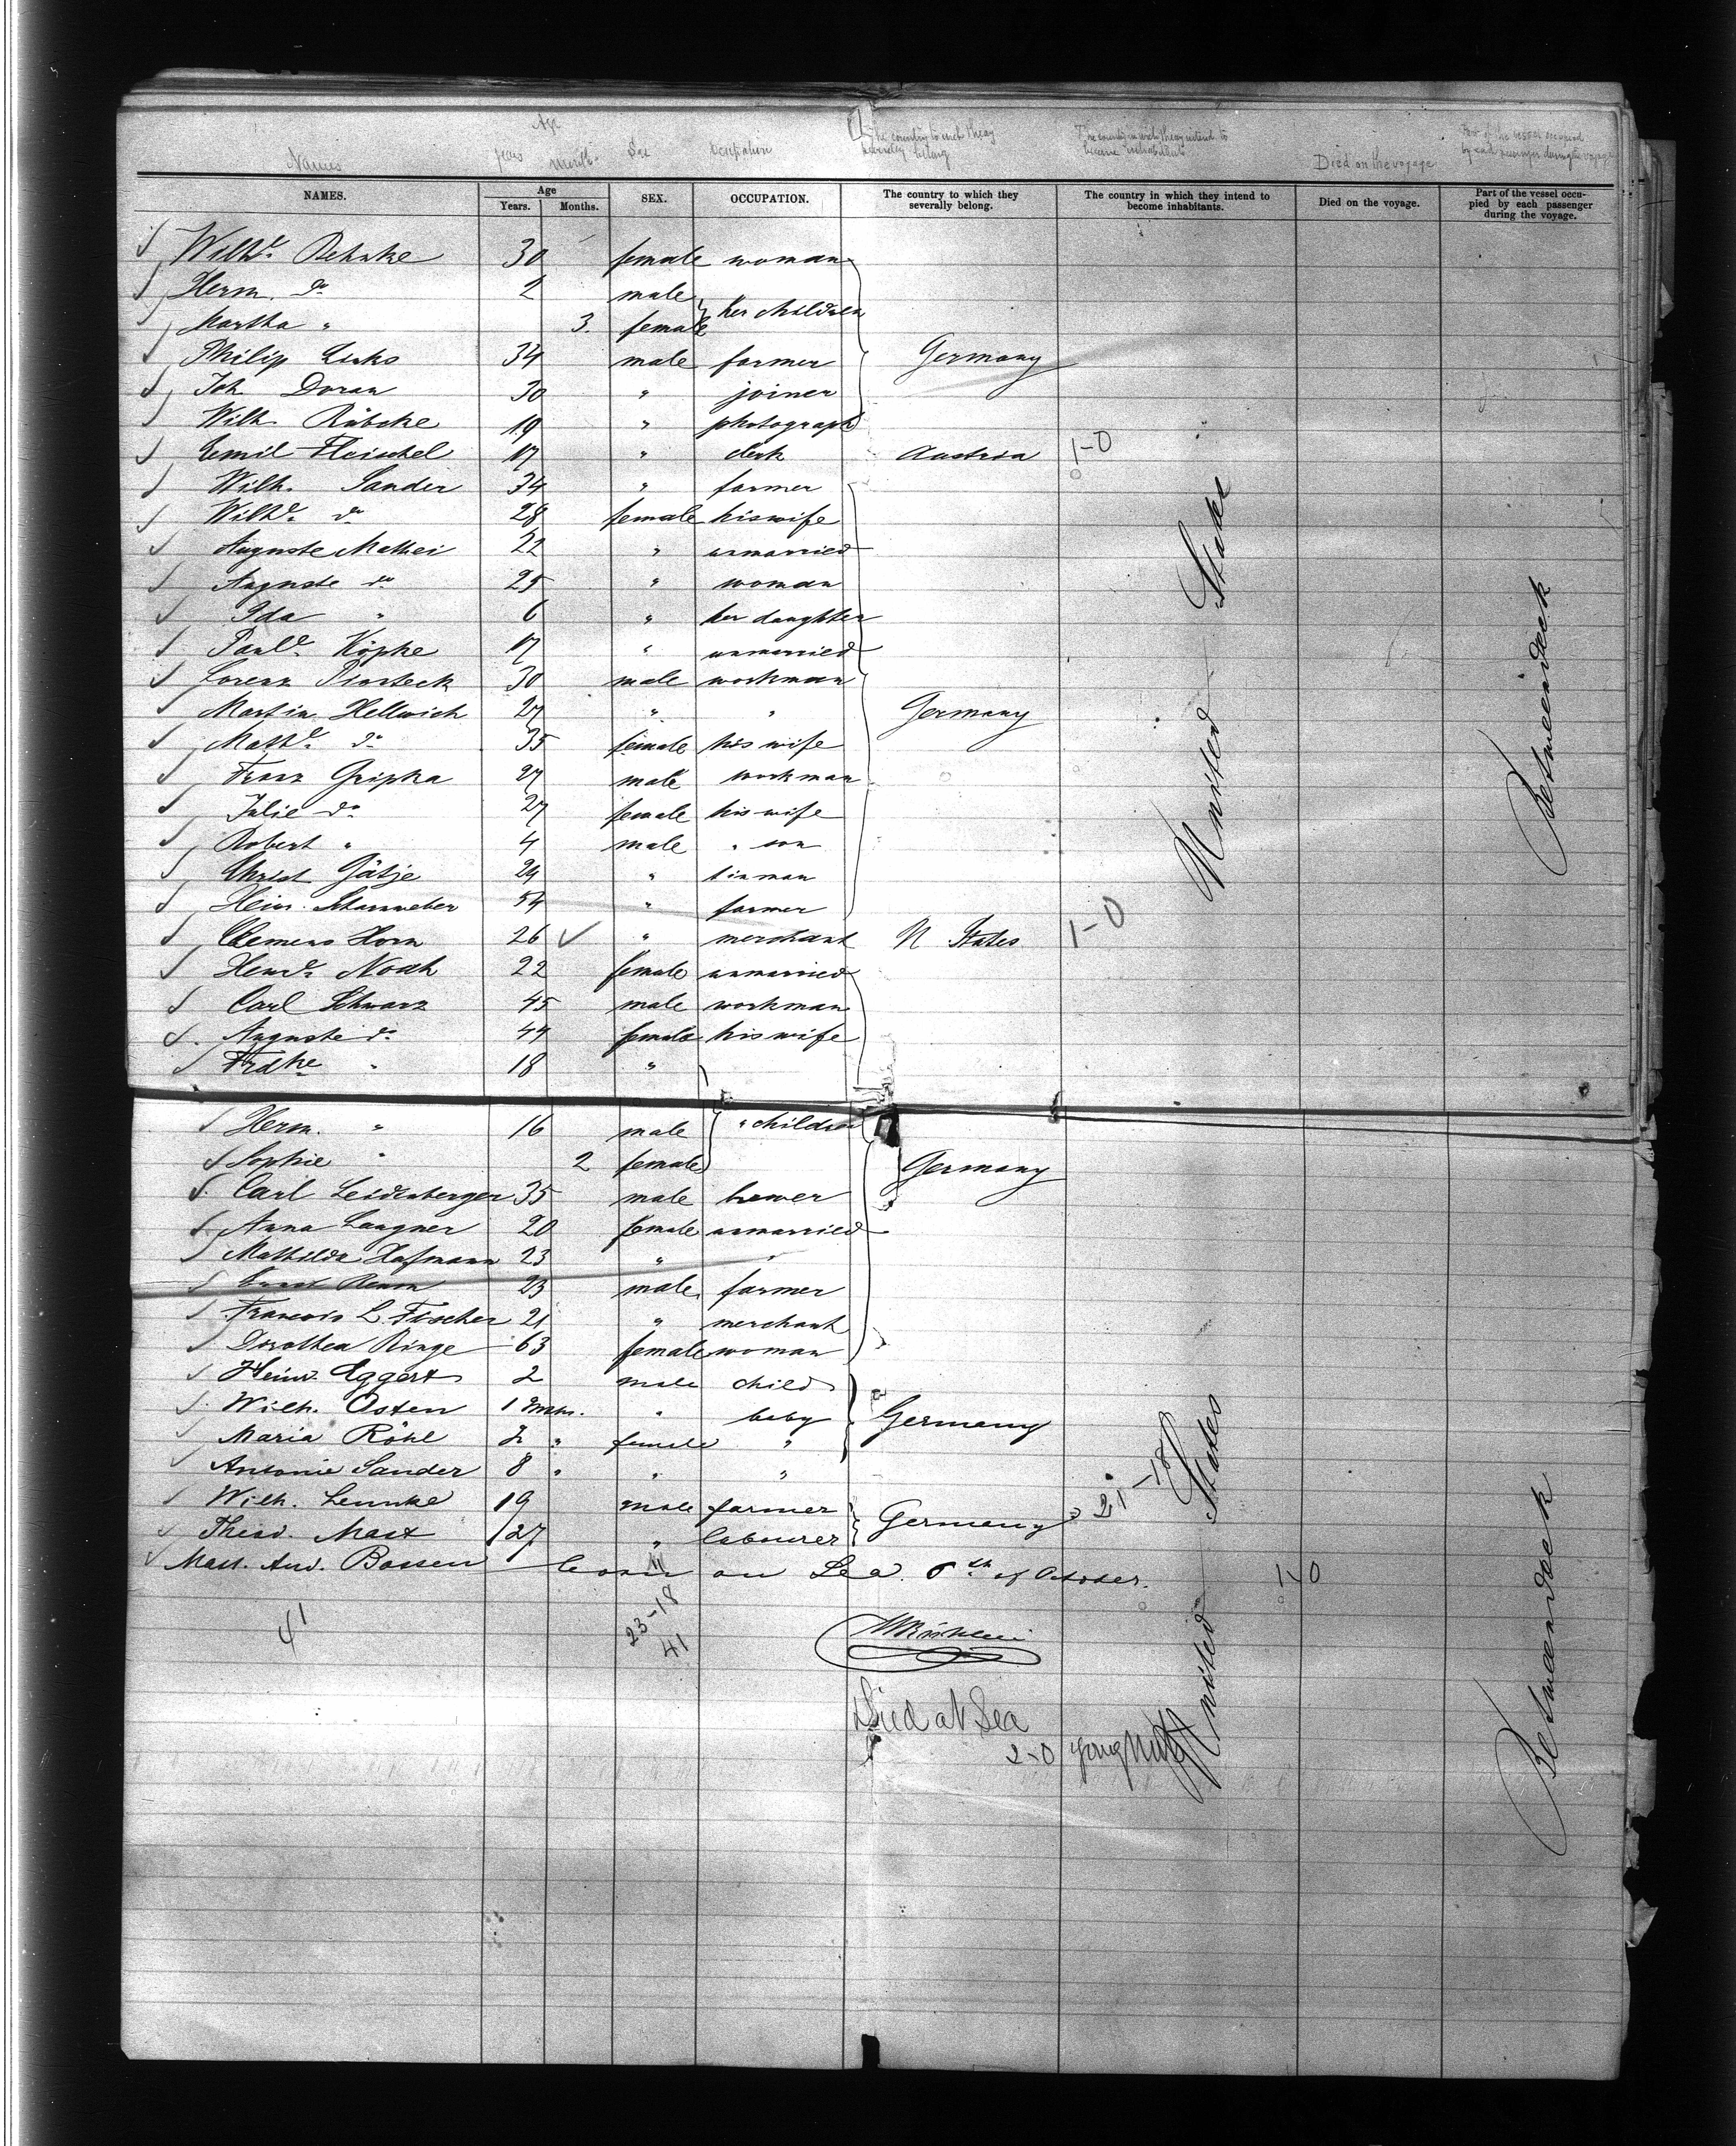 Names Age years months Sex Occupation The country to which they severally belong The country in which they intend to become inhabitants Died on the voyage Part of the vessel occupied by each passenger during the voyage
NAMES. Age Years. Months. SEX. OCCUPATION. The country to which they severally belong. The country in which they intend to become inhabitants. Died on the voyage. Part of the vessel occupied by each passenger during the voyage.
Wilhe. Behnke 30 female woman
Herm. do 2 male her children
Martha " 3. female
Philip Links 34 male farmer Germany
Joh Doran 30 " joiner
Wilh. Rübcke 19 " photograph
Emil Fleischel 17 " clerk Austria 1-0
Wilh. Sander 34 " farmer
Wilhe. do 28 female his wife
Auguste Mathei 22 " unmarried
Auguste do 25 " woman
Ida " 6 " her daughter
Paule. Köpke 17 " unmarried
Lorenz 30 male workman
Martin Hellwich 27 " " Germany
Mathe. do 35 female his wife
Franz Gripka 27 male workman
Julie do 27 female his wife
Robert " 4 male " son
Christ Gätje 24 " tinman
Heinr. Scharnweber 54 " farmer
Clemens Horn 26 " merchant U States 1-0
Henre. Noah 22 female unmarried
Carl Schwarz 45 male workman
Auguste do 44 female his wife
Frdke " 18 "
Herm. " 16 male " children
Sophie " 2 female Germany
Carl Leidenberger 35 male brewer
Anna Langner 20 female unmarried
Mathilde Hofmann 23 " "
23 male farmer
Francois L. Fischer 21 " merchant
Dorothea Ringe 63 female woman
Heinr. Eggert 2 male child
Wilh. Osten 1 mths. " baby Germany
Maria Röhl 2 " female "
Antonie Sander 8 " " "
Wilh. Lemke 19 male farmer Germany 21-18
Theod. Mast 27 " labourer
Bossen born on Sea 6th of October. 1-0
United States
Betweendeck
41 23-18
41
Died at Sea
2-0
United States
Betweendeck